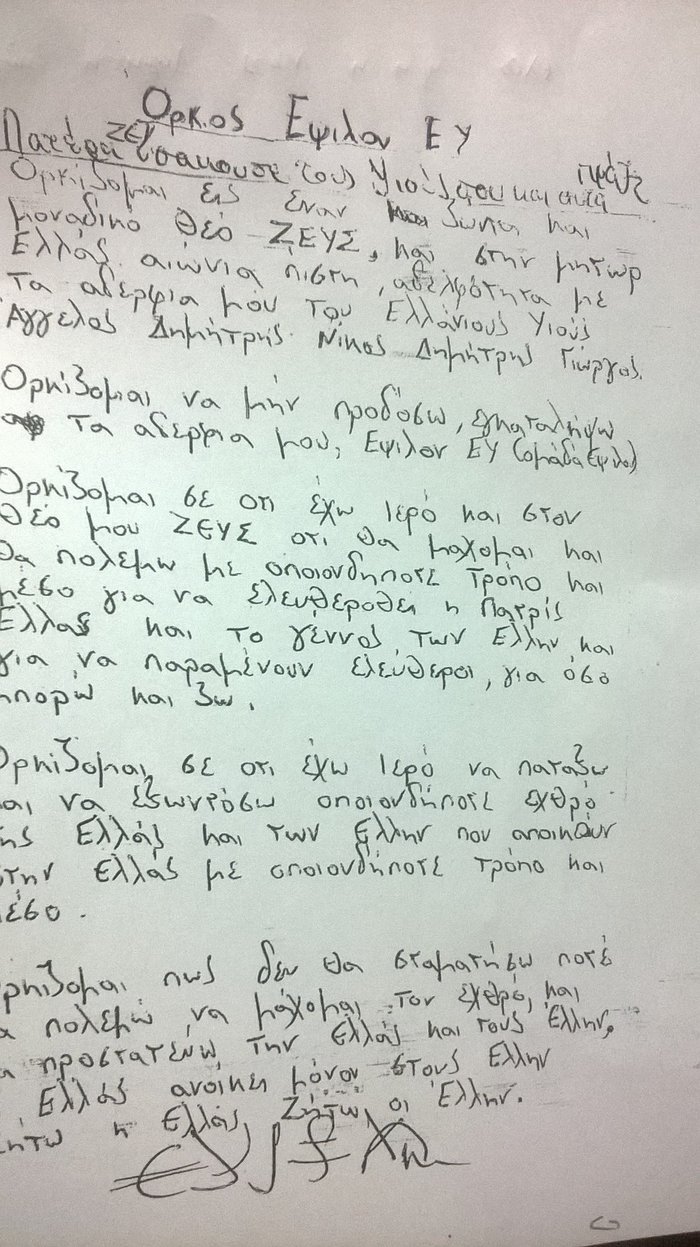 Ορκος Εψιλον ΕΥ
Πατέρα ΖΕΥ εσακουσε τους Υιούς σου και αυτά πράξε
Ορκίζομαι εις έναν ζωντα και
μοναδικό Θεό ΖΕΥΣ, και στην μητωρ
Ελλάς αιώνια πιστη, αδελφότητα με
Τα αδερφια μου Του Ελλάνιους Υιούς
Άγγελος Δημήτρης Νίκος Δημήτρης Γιώργος.
Ορκίζομαι να μήν προδόσω, εγκαταλήψω
Τα αδερφια μου, Εψιλον ΕΥ (ομάδα Εψιλον)
Ορκίζομαι σε οτι έχω Ιερό και στον
Θέο μου ΖΕΥΣ οτι θα μαχομαι και
θα πολεμω με οποιονδηποτε Τρόπο και
μέσο για να ελευθέροθει η Πατρίς
Ελλας και το γεννος των Ελλην και
για να παραμένουν ελευθεροι, για όσο
μπορώ και ζω.
Ορκίζομαι σε οτι έχω Ιερό να παταξω
αι να εξωντρόσω οποιονδήποτε έχθρό
ης Ελλάς και των Ελλην που αποικουν
την Ελλάς με οποιονδήποτε τρόπο και
μέσο.
ρκίζομαι πως δεν θα σταματήσω ποτέ
α πολεμώ, να μάχομαι τον εχθρό, και
α προστατεύω την Ελλάς και τους Έλλην,
Ελλάς ανοικει μόνον στους Ελλην
ήτω η Ελλάς Ζήτω οι Έλλην.